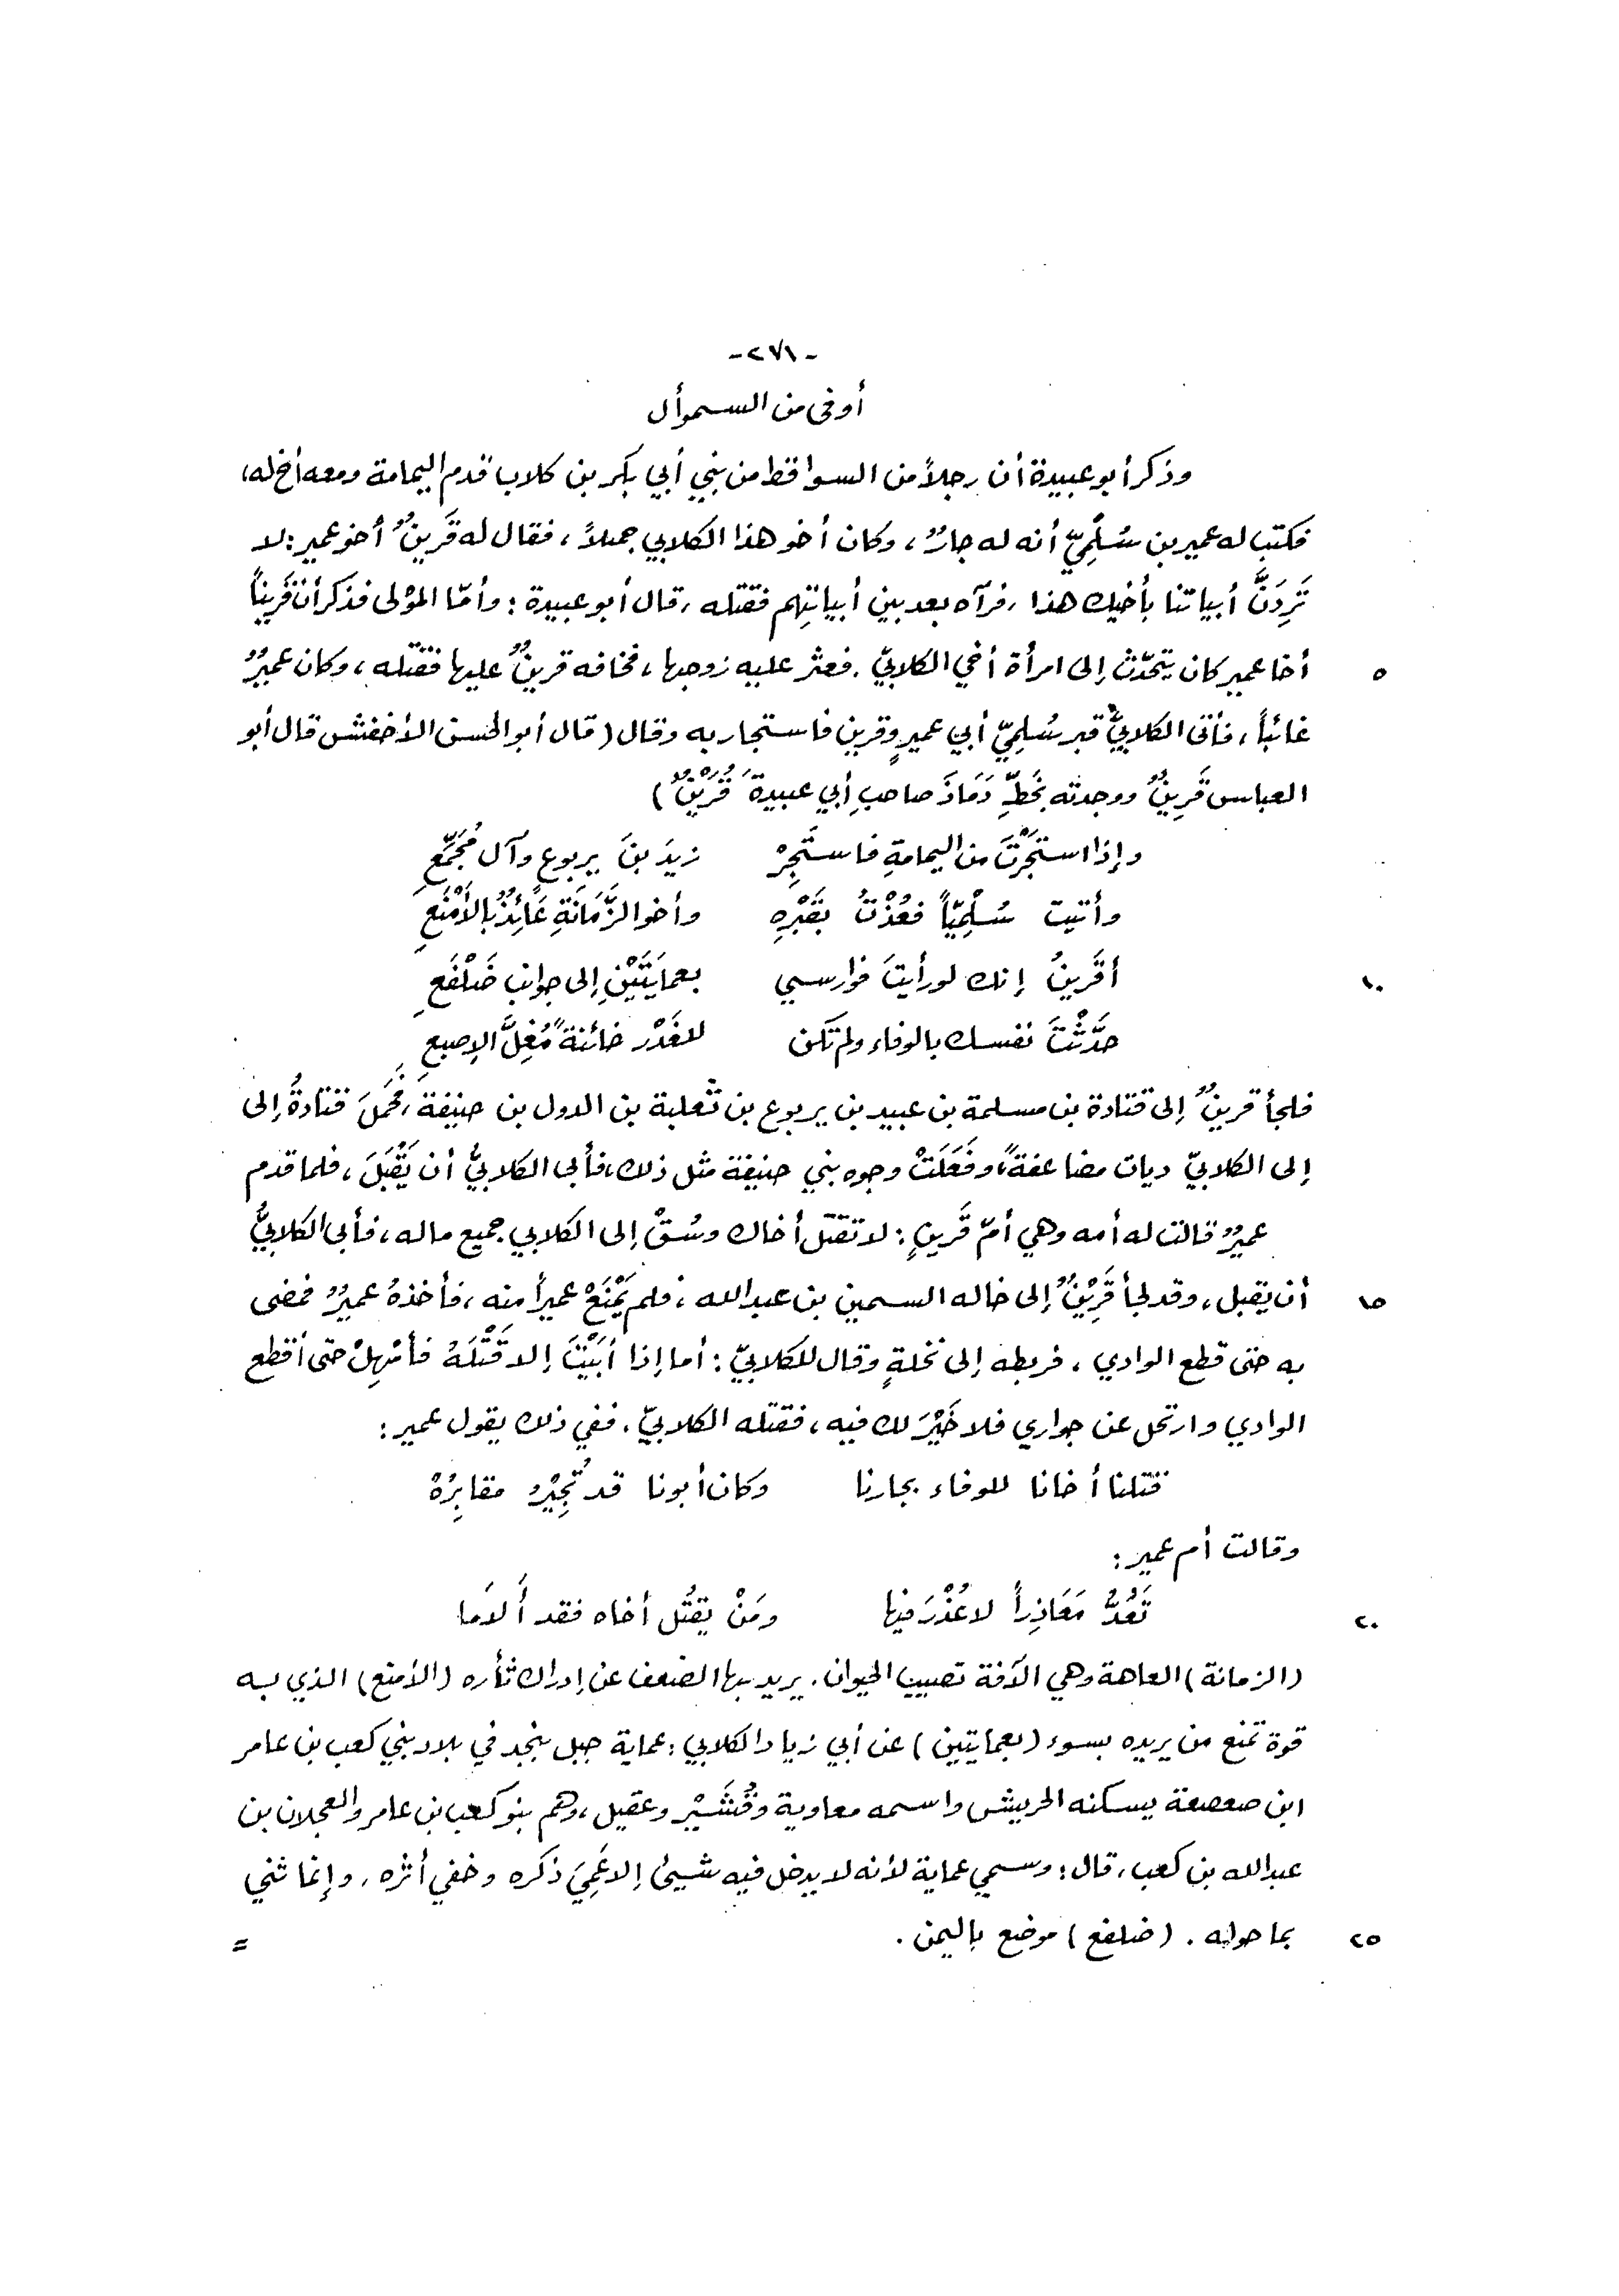 -٢٧١-
أوفى من السموأل
وذكر أبو عبيدة أن رجلاً من السواقط من بني أبي بكر بن كلاب قدم اليمامة ومعه أخ له،
فكتب له عمير بن سُلْمِيّ أنه له جارٌ، وكان أخو هذا الكلابي جميلاً، فقال له قَرِينٌ أخو عمير: لا
تَرِدَنَّ أبياتنا بأخيك هذا، فرآه بعد بين أبياتِهم فقتله، قال أبو عبيدة: وأمّا المَوْلى فذكر أن قَرِيناً
٥ أخا عمير كان يتحدّث إلى امرأة أخي الكلابيّ. فعثر عليه زوجها، فخافه قرينٌ عليها فقتله، وكان عميرٌ
غائباً، فأتى الكلابيُّ قبر سُلمِيّ أبي عميرٍ وقرين فاستجار به وقال (قال أبو الحسن الأخفش قال أبو
العباس قَرِينٌ ووجدته بخَطِّ دَمَاذَ صاحبِ أبي عبيدة قُرَيْنٌ)
وإذا استَجَرْتَ من اليمامةِ فاستَجِرْ زيدَ بنَ يربوع وآل مُجَمِّعِ
وأتيت سُلْمِيّاً فعُذْتُ بقَبْرِهِ وأخو الزَّمَانَةِ عَائِذٌ بالأَمْنَعِ
١٠ أقَرِينُ إنك لو رأيتَ فوارسي بعمايَتَيْنِ إلى جوانب ضَلْفَعِ
حدَّثْتَ نفسك بالوفاء ولم تكن للغَدْر خائنةً مُغِلَّ الإصبعِ
فلجأ قرينٌ إلى قتادة بن مسلمة بن عبيد بن يربوع بن ثعلبة بن الدول بن حنيفة، فحَمَلَ قتادةُ إلى
إلى الكلابيّ ديات مضاعفةً، وفَعَلَتْ وجوه بني حنيفة مثل ذلك، فأبى الكلابيُّ أن يَقْبَلَ، فلما قدم
عميرٌ قالت له أمه وهي أمّ قَرينٍ: لا تقتل أخاك وسُقْ إلى الكلابي جميع ماله، فأبى الكلابيُّ
١٥ أن يقبل، وقد لجأ قَرِيْنٌ إلى خاله السمين بن عبد الله، فلم يَمْنَعْ عميراً منه، فأخذهُ عميرٌ فمضى
به حتى قطع الوادي، فربطه إلى نخلةٍ وقال للكلابيّ: أما إذا أبَيْتَ إلا قَتْلَهُ فأمْهِلْ حتى أقطع
الوادي وارتحل عن جواري فلا خَيْرَ لك فيه، فقتله الكلابيّ. ففي ذلك يقول عمير:
قتلنا أخانا للوفاء بجارنا وكان أبونا قد تُجِيْرُ مقابِرُهْ
وقالت أم عمير:
٢٠ تَعُدُّ مَعَاذِراً لا عُذْرَ فيها ومَنْ يقتُل أخاه فقد ألاَمَا
(الزمانة) العاهة وهي الآفة تصيب الحيوان. يريد بها الضعف عن إدراك ثأره (الأمنع) الذي به
قوة تمنع من يريده بسوء (بعمايتين) عن أبي زياد الكلابي: عماية جبل بنجد في بلاد بني كعب بن عامر
ابن صعصعة يسكنه الحريش واسمه معاوية وقُشَيْر وعقيل، وهم بنو كعب بن عامر والعجلان بن
عبد الله بن كعب، قال: وسمي عماية لأنه لا يدخل فيه شيئ إلا عَمِيَ ذكره وخفي أثره، وإنما ثني
٢٥ بما حوله. (ضلفع) موضع باليمن. =